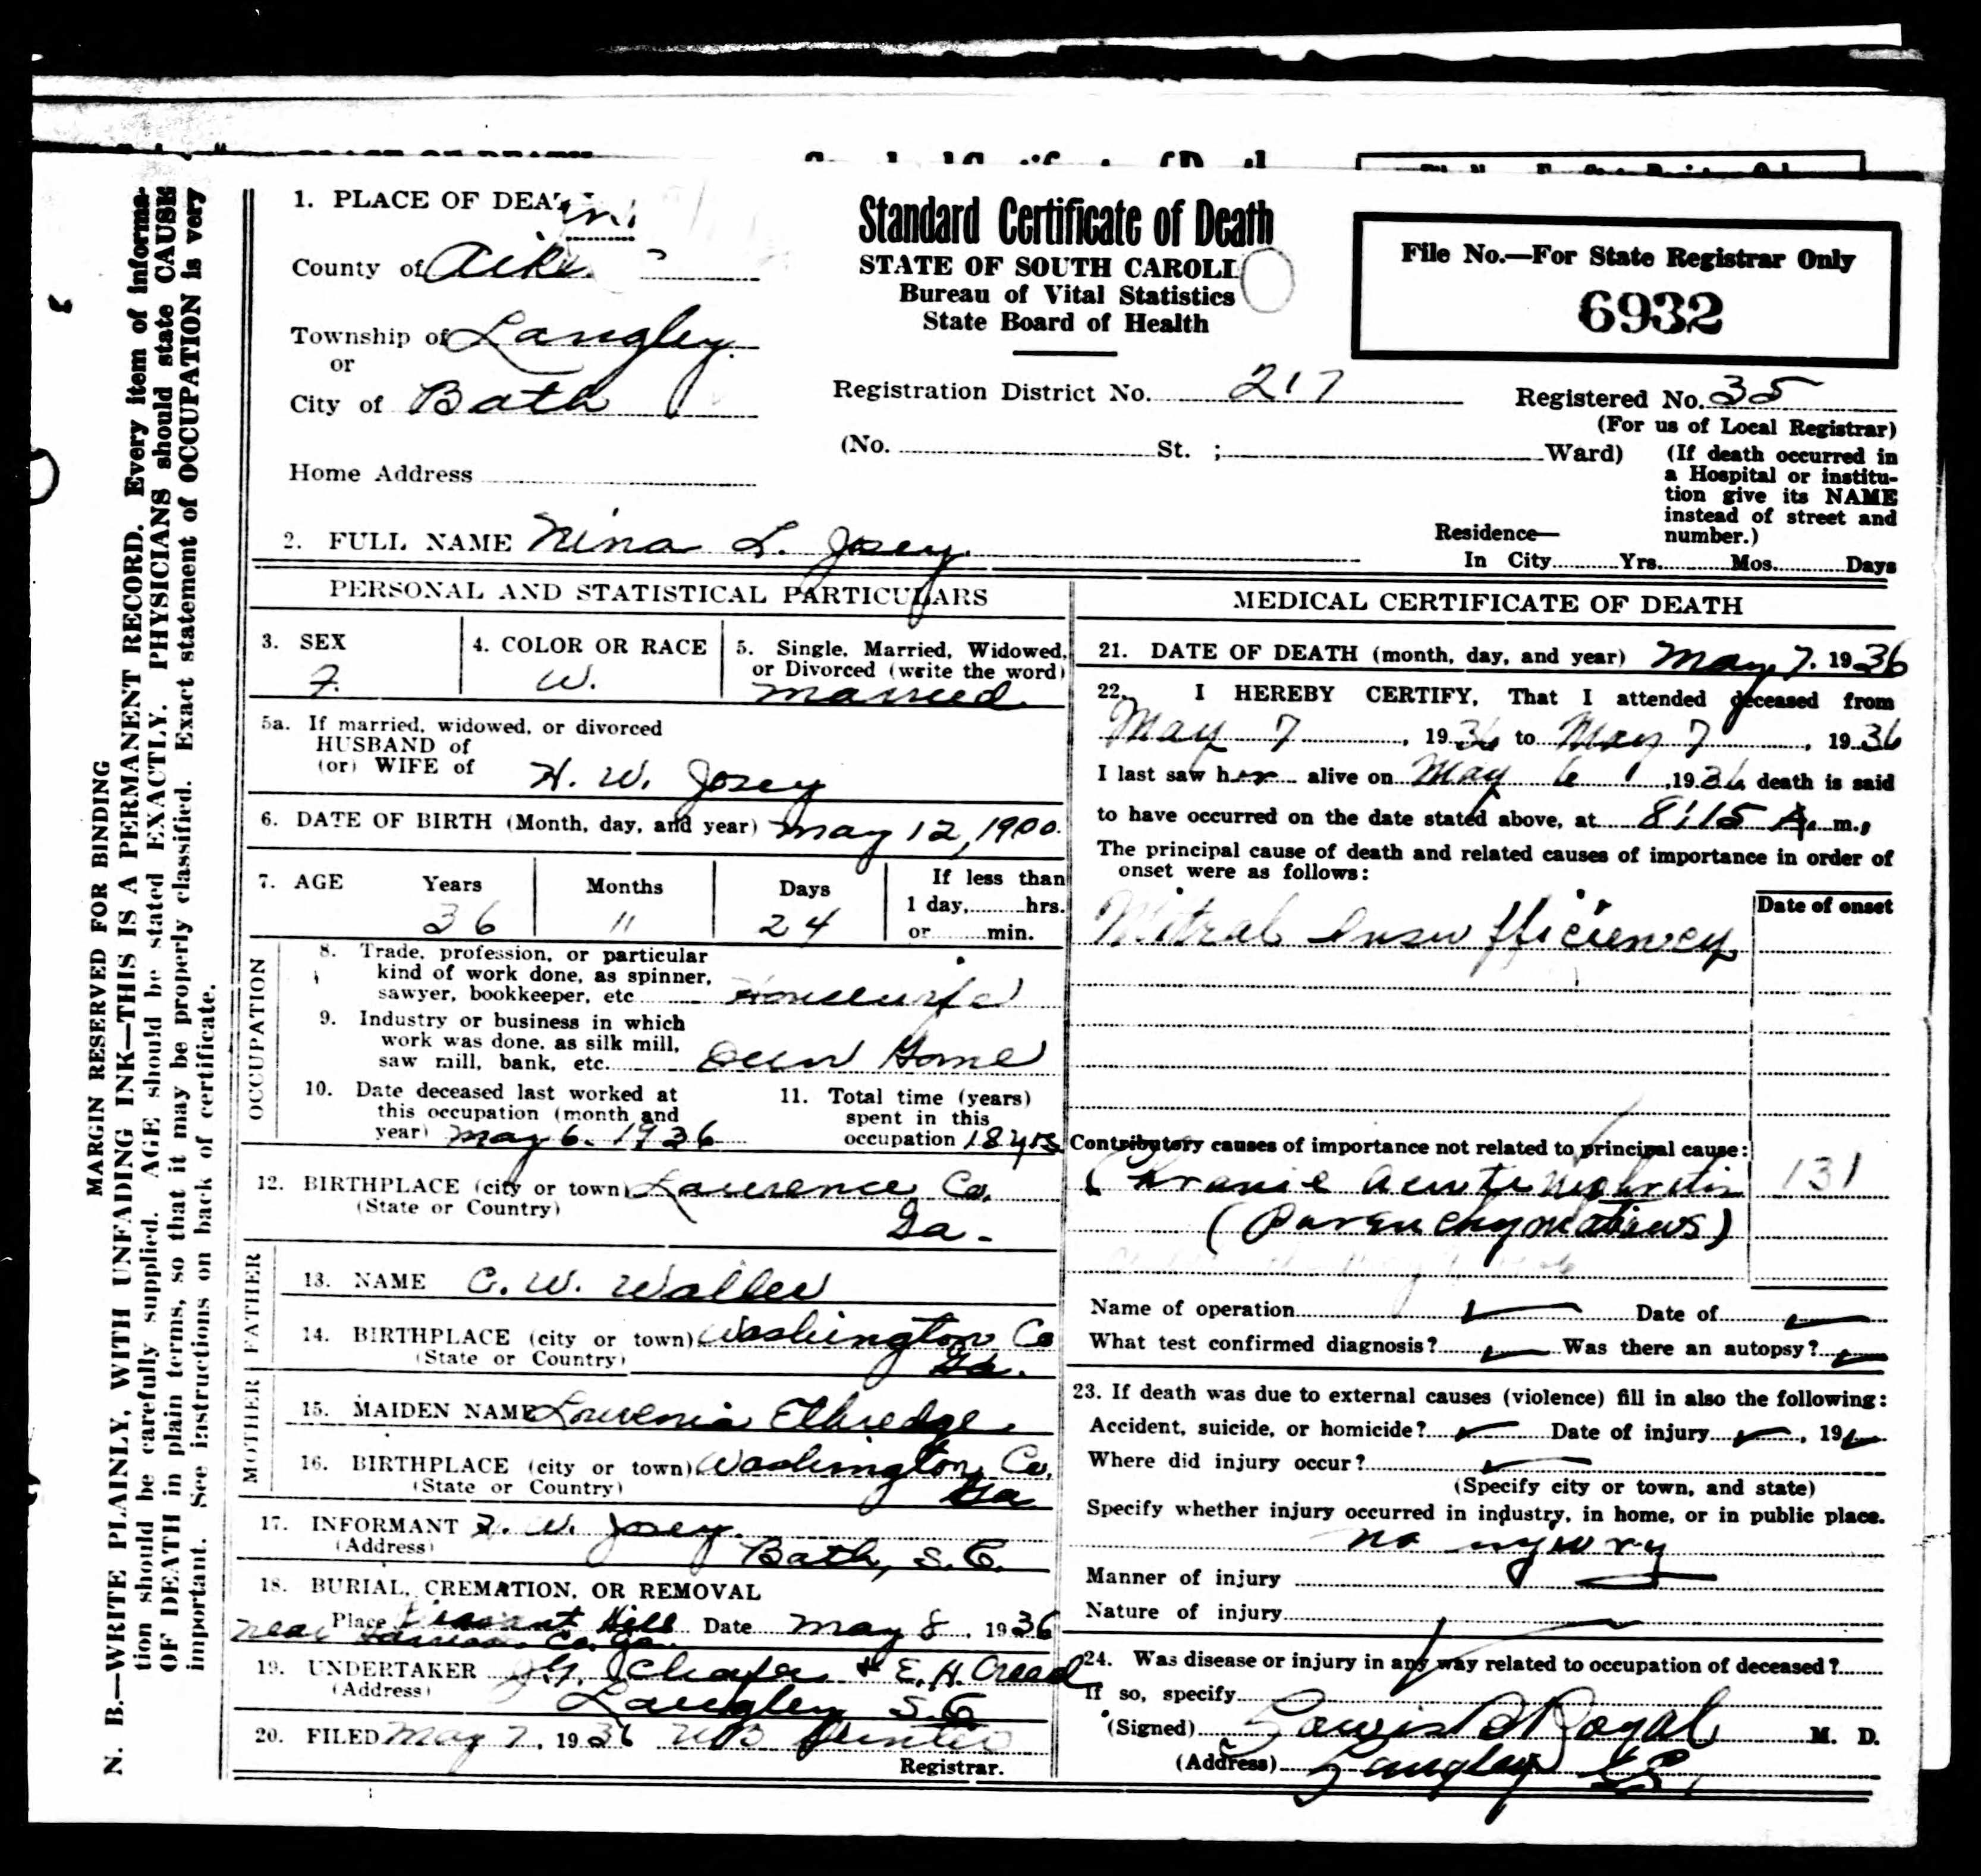 1. PLACE OF DEA
County of Aiken
Township of Langley
or
City of Bath
Home Address
Standard Certificate of Death
STATE OF SOUTH CAROLI
Bureau of Vital Statistics
State Board of Health
File No.—For State Registrar Only
6932
Registration District No. 217
Registered No. 35
(For us of Local Registrar)
(No. St. ; Ward)
(If death occurred in
a Hospital or institu-
tion give its NAME
instead of street and
number.)
2. FULL NAME Nina L. Josey
Residence—
In City Yrs. Mos. Days
PERSONAL AND STATISTICAL PARTICULARS
3. SEX
F.
4. COLOR OR RACE
W.
5. Single, Married, Widowed,
or Divorced (write the word)
Married
5a. If married, widowed, or divorced
HUSBAND of
(or) WIFE of
H. W. Josey
6. DATE OF BIRTH (Month, day, and year) May 12, 1900.
7. AGE Years Months Days
36 11 24
If less than
1 day, hrs.
or min.
OCCUPATION
8. Trade, profession, or particular
kind of work done, as spinner,
sawyer, bookkeeper, etc Housewife
9. Industry or business in which
work was done, as silk mill,
saw mill, bank, etc. Own Home
10. Date deceased last worked at
this occupation (month and
year) May 6. 1936
11. Total time (years)
spent in this
occupation 18 yrs
12. BIRTHPLACE (city or town) Laurence Co.
(State or Country) Ga-
FATHER
13. NAME C. W. Waller
14. BIRTHPLACE (city or town) Washington Co
(State or Country) Ga.
MOTHER
15. MAIDEN NAME Louvenia Ethredge
16. BIRTHPLACE (city or town) Washington Co.
(State or Country) Ga
17. INFORMANT H. W. Josey
(Address) Bath, S.C.
18. BURIAL, CREMATION, OR REMOVAL
Place Hill Date May 8. 1936
near Co. Ga.
19. UNDERTAKER & E. H. Creed
(Address) Langley S.C.
20. FILED May 7, 1936
Registrar.
MEDICAL CERTIFICATE OF DEATH
21. DATE OF DEATH (month, day, and year) May 7. 1936
22. I HEREBY CERTIFY, That I attended deceased from
May 7, 1936 to May 7, 1936
I last saw her alive on May 6, 1936 death is said
to have occurred on the date stated above, at 8:15 A. m.,
The principal cause of death and related causes of importance in order of
onset were as follows:
Date of onset
Mitral Insufficiency
Contributory causes of importance not related to principal cause:
Chronic acute Nephritis 131
(Parenchymatious)
Name of operation Date of
What test confirmed diagnosis? Was there an autopsy?
23. If death was due to external causes (violence) fill in also the following:
Accident, suicide, or homicide? Date of injury , 19
Where did injury occur?
(Specify city or town, and state)
Specify whether injury occurred in industry, in home, or in public place.
no injury
Manner of injury
Nature of injury
24. Was disease or injury in any way related to occupation of deceased?
If so, specify
(Signed) Royal M. D.
(Address) Langley S.C.
MARGIN RESERVED FOR BINDING
N. B.—WRITE PLAINLY, WITH UNFADING INK—THIS IS A PERMANENT RECORD. Every item of informa-
tion should be carefully supplied. AGE should be stated EXACTLY. PHYSICIANS should state CAUSE
OF DEATH in plain terms, so that it may be properly classified. Exact statement of OCCUPATION is very
important. See instructions on back of certificate.